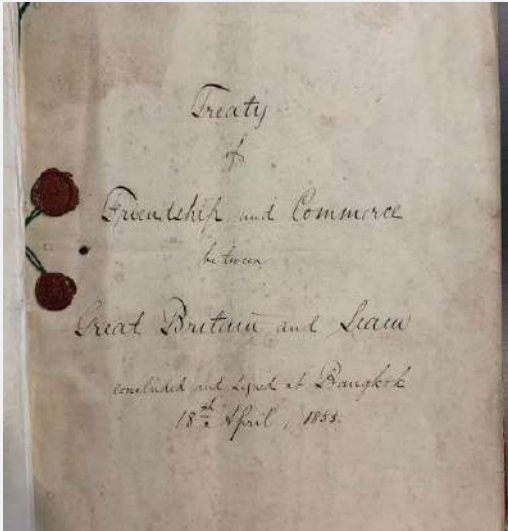 Treaty
of
Friendship and Commerce
between
Great Britain and Siam
concluded and signed at Bangkok
18th April, 1855.